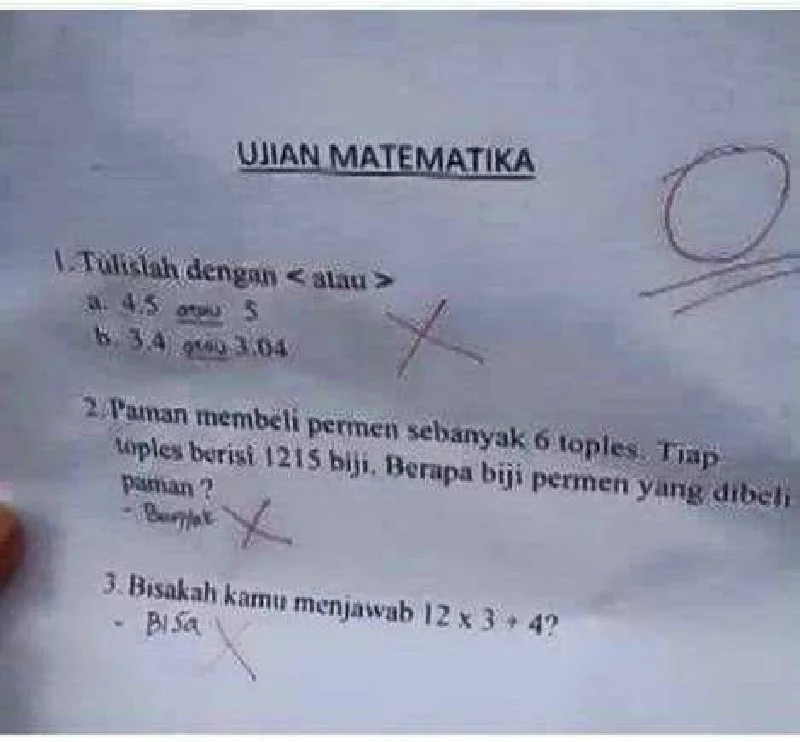 UJIAN MATEMATIKA
1. Tulislah dengan < atau >
a. 4.5 atau 5
b. 3.4 atau 3.04
2. Paman membeli permen sebanyak 6 toples. Tiap
toples berisi 1215 biji. Berapa biji permen yang dibeli
paman ?
- Banyak
3. Bisakah kamu menjawab 12 x 3 + 4?
- BISa